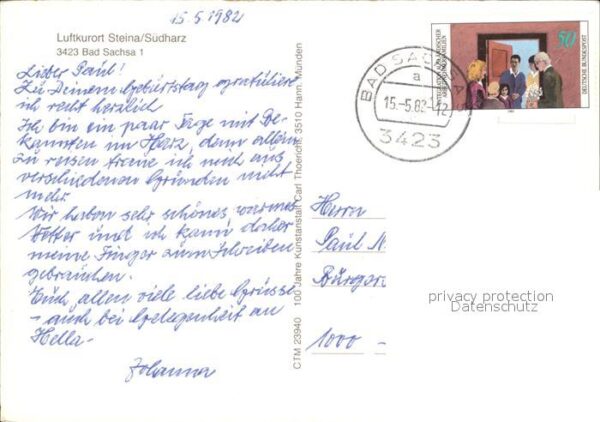 15.5.1982
Luftkurort Steina/Südharz
3423 Bad Sachsa 1
Lieber Paul!
Zu Deinem Geburtstag gratuliere
ich recht herzlich
Ich bin ein paar Tage mit Be-
kannten im Harz, denn allein
zu reisen traue ich mich aus
verschiedenen Gründen nicht
mehr.
Wir haben sehr schönes, warmes
Wetter und ich kann daher
meine Finger zum Schreiben
gebrauchen.
Euch allen viele liebe Grüsse
- auch bei Gelegenheit an
Hella -
Johanna
CTM 23940 100 Jahre Kunstanstalt Carl Thoericht, 3510 Hann. Münden
BAD SACHSA
a
15.-5.82-12
3423
50
DEUTSCHE BUNDESPOST
Herrn
Paul N
Bürger
1000 -
privacy protection
Datenschutz